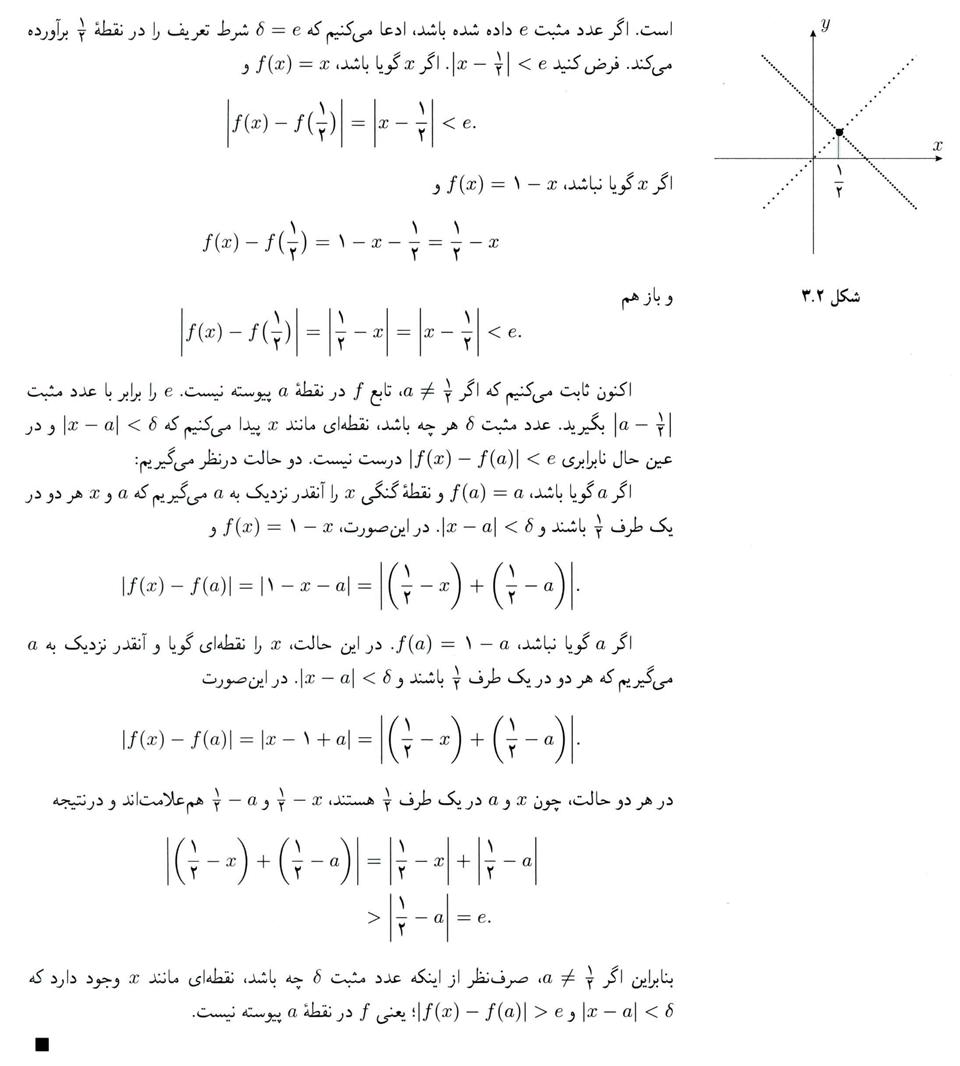 است. اگر عدد مثبت e داده شده باشد، ادعا می‌کنیم که δ = e شرط تعریف را در نقطهٔ ۱/۲ برآورده
می‌کند. فرض کنید |x − ۱/۲| < e. اگر x گویا باشد، f(x) = x و
|f(x) − f(۱/۲)| = |x − ۱/۲| < e.
اگر x گویا نباشد، f(x) = ۱ − x و
f(x) − f(۱/۲) = ۱ − x − ۱/۲ = ۱/۲ − x
و باز هم
|f(x) − f(۱/۲)| = |۱/۲ − x| = |x − ۱/۲| < e.
اکنون ثابت می‌کنیم که اگر a ≠ ۱/۲، تابع f در نقطهٔ a پیوسته نیست. e را برابر با عدد مثبت
|a − ۱/۲| بگیرید. عدد مثبت δ هر چه باشد، نقطه‌ای مانند x پیدا می‌کنیم که |x − a| < δ و در
عین حال نابرابری |f(x) − f(a)| < e درست نیست. دو حالت درنظر می‌گیریم:
اگر a گویا باشد، f(a) = a و نقطهٔ گنگی x را آنقدر نزدیک به a می‌گیریم که a و x هر دو در
یک طرف ۱/۲ باشند و |x − a| < δ. در این‌صورت، f(x) = ۱ − x و
|f(x) − f(a)| = |۱ − x − a| = |(۱/۲ − x) + (۱/۲ − a)|.
اگر a گویا نباشد، f(a) = ۱ − a. در این حالت، x را نقطه‌ای گویا و آنقدر نزدیک به a
می‌گیریم که هر دو در یک طرف ۱/۲ باشند و |x − a| < δ. در این‌صورت
|f(x) − f(a)| = |x − ۱ + a| = |(۱/۲ − x) + (۱/۲ − a)|.
در هر دو حالت، چون x و a در یک طرف ۱/۲ هستند، x − ۱/۲ و a − ۱/۲ هم‌علامت‌اند و درنتیجه
|(۱/۲ − x) + (۱/۲ − a)| = |۱/۲ − x| + |۱/۲ − a|
> |۱/۲ − a| = e.
بنابراین اگر a ≠ ۱/۲، صرف‌نظر از اینکه عدد مثبت δ چه باشد، نقطه‌ای مانند x وجود دارد که
|x − a| < δ و |f(x) − f(a)| > e؛ یعنی f در نقطهٔ a پیوسته نیست.
y
x
۱/۲
شکل ۳.۲